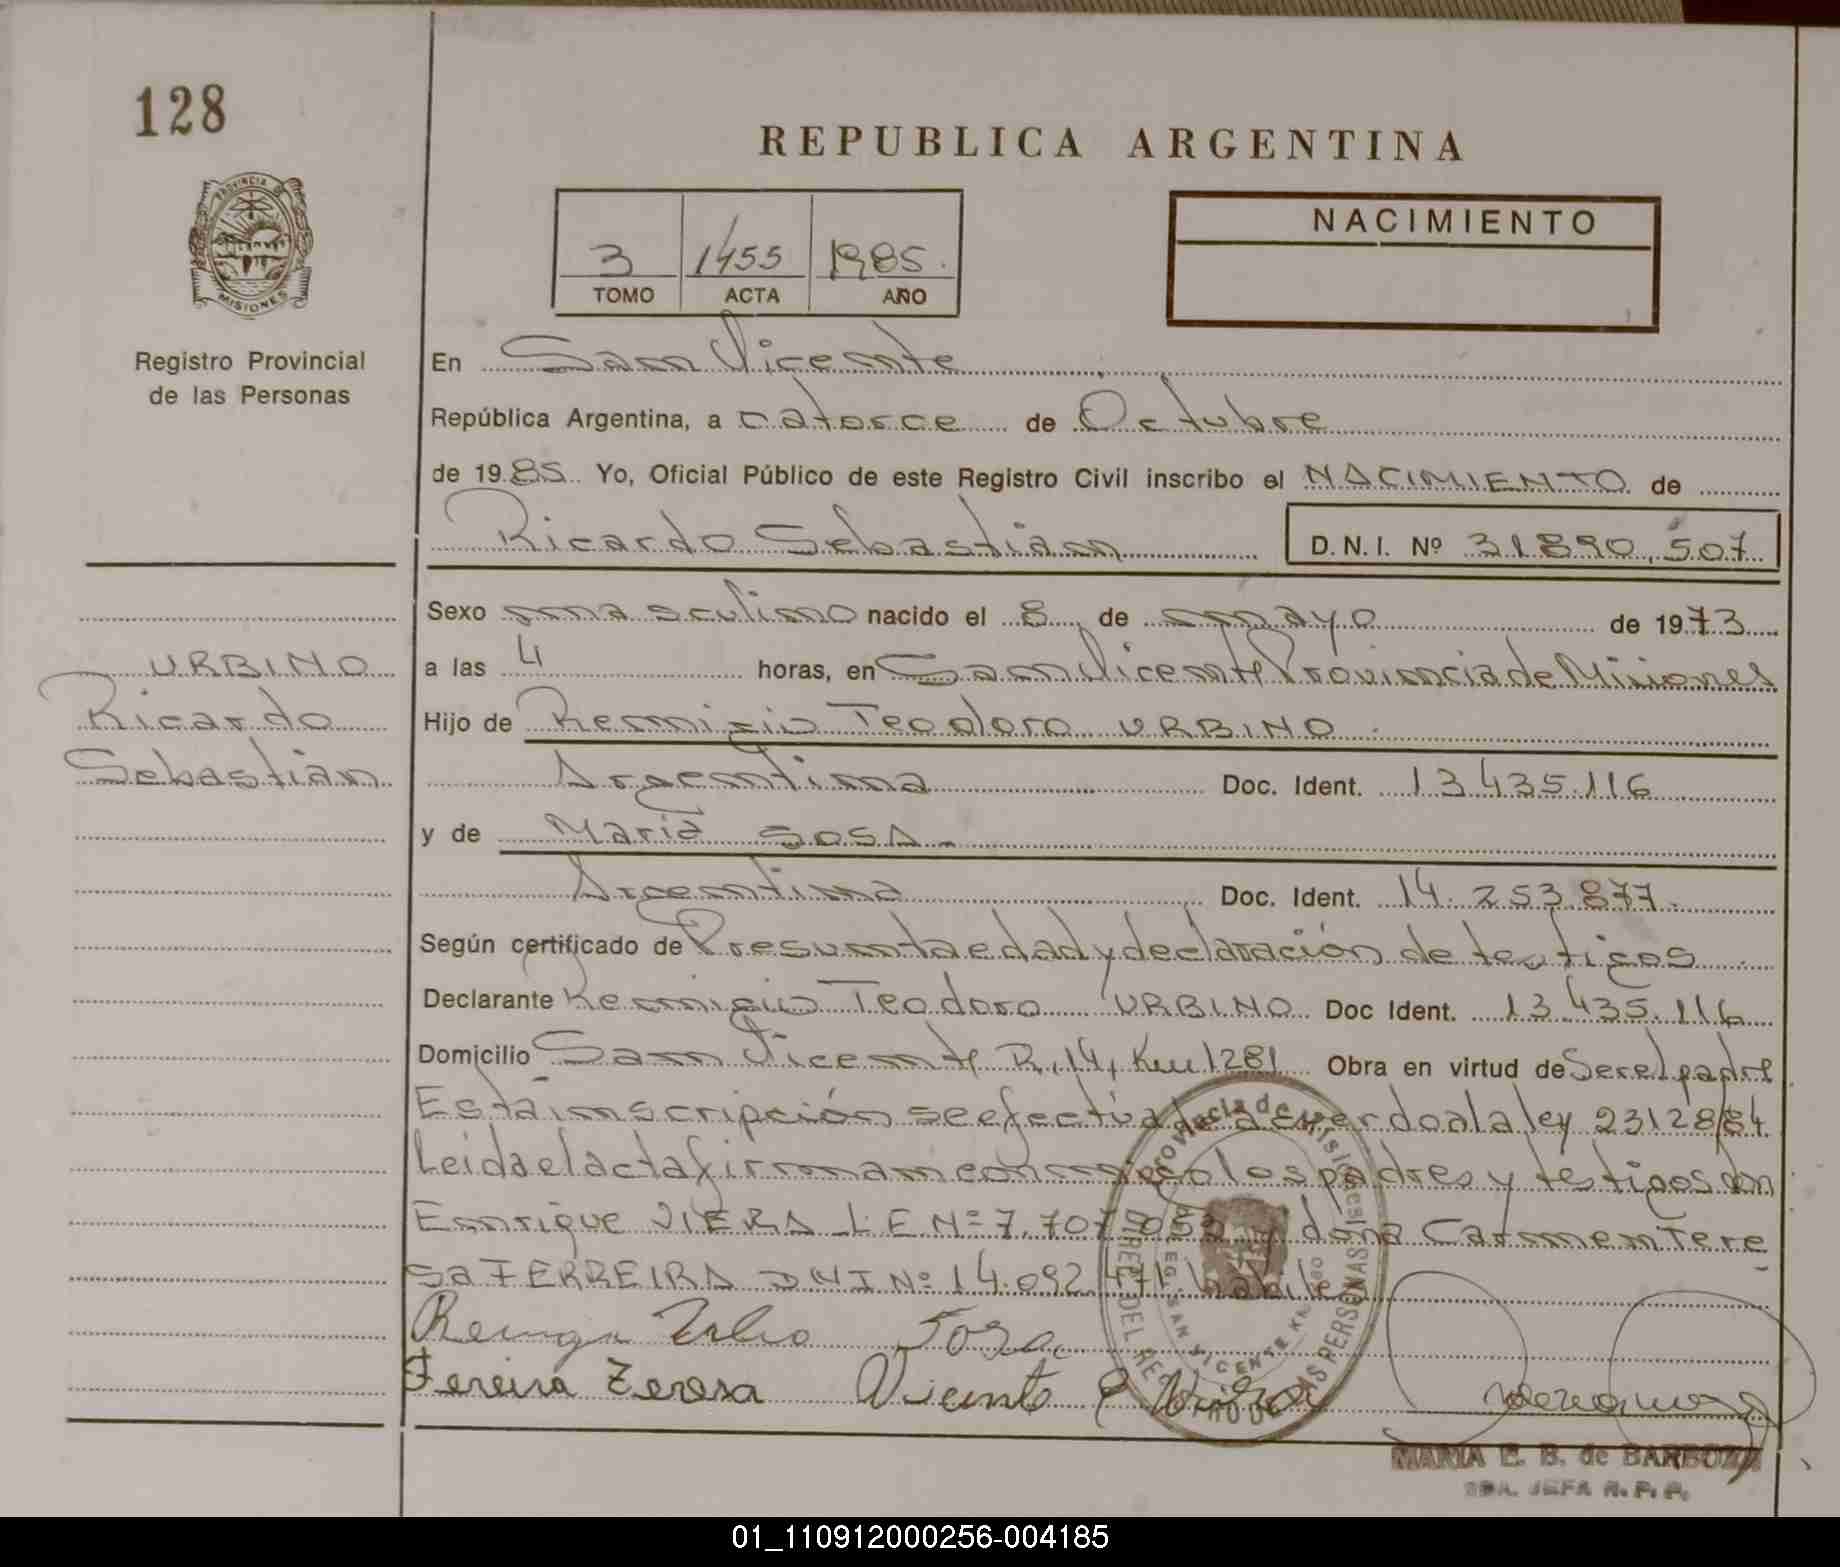 128
REPUBLICA ARGENTINA
PROVINCIA DE
MISIONES
Registro Provincial
de las Personas
3 1455 1985.
TOMO ACTA AÑO
NACIMIENTO
En San Vicente
República Argentina, a catorce de Octubre
de 1985. Yo, Oficial Público de este Registro Civil inscribo el NACIMIENTO de
Ricardo Sebastián D.N.I. Nº 31.890.507
Sexo masculino nacido el 8 de mayo de 1973
a las 4 horas, en San Vicente Provincia de Misiones
URBINO
Ricardo
Sebastián
Hijo de Remigio Teodoro URBINO
Argentina Doc. Ident. 13.435.116
y de María SOSA.
Argentina Doc. Ident. 14.253.877.
Según certificado de Presunta edad y declaración de testigos
Declarante Remigio Teodoro URBINO Doc Ident. 13.435.116
Domicilio San Vicente R. 14, Km 1281 Obra en virtud de Ser el padre
Está inscripción se efectúa de acuerdo a la ley 23128/84
Leida el acta firman conmigo los padres y testigos don
Enrique VIERA L.E.Nº 7.707.052 y doña Carmen Tere
sa FERREIRA DNI Nº 14.092.471 habiles
Sosa
Fereira Teresa Vicente E Viera
Provincia de Misiones
SAN VICENTE
DIREC. DEL REGISTRO DE LAS PERSONAS
MARIA E. B. de BARBOZA
JEFA R. P. P.
01_110912000256-004185